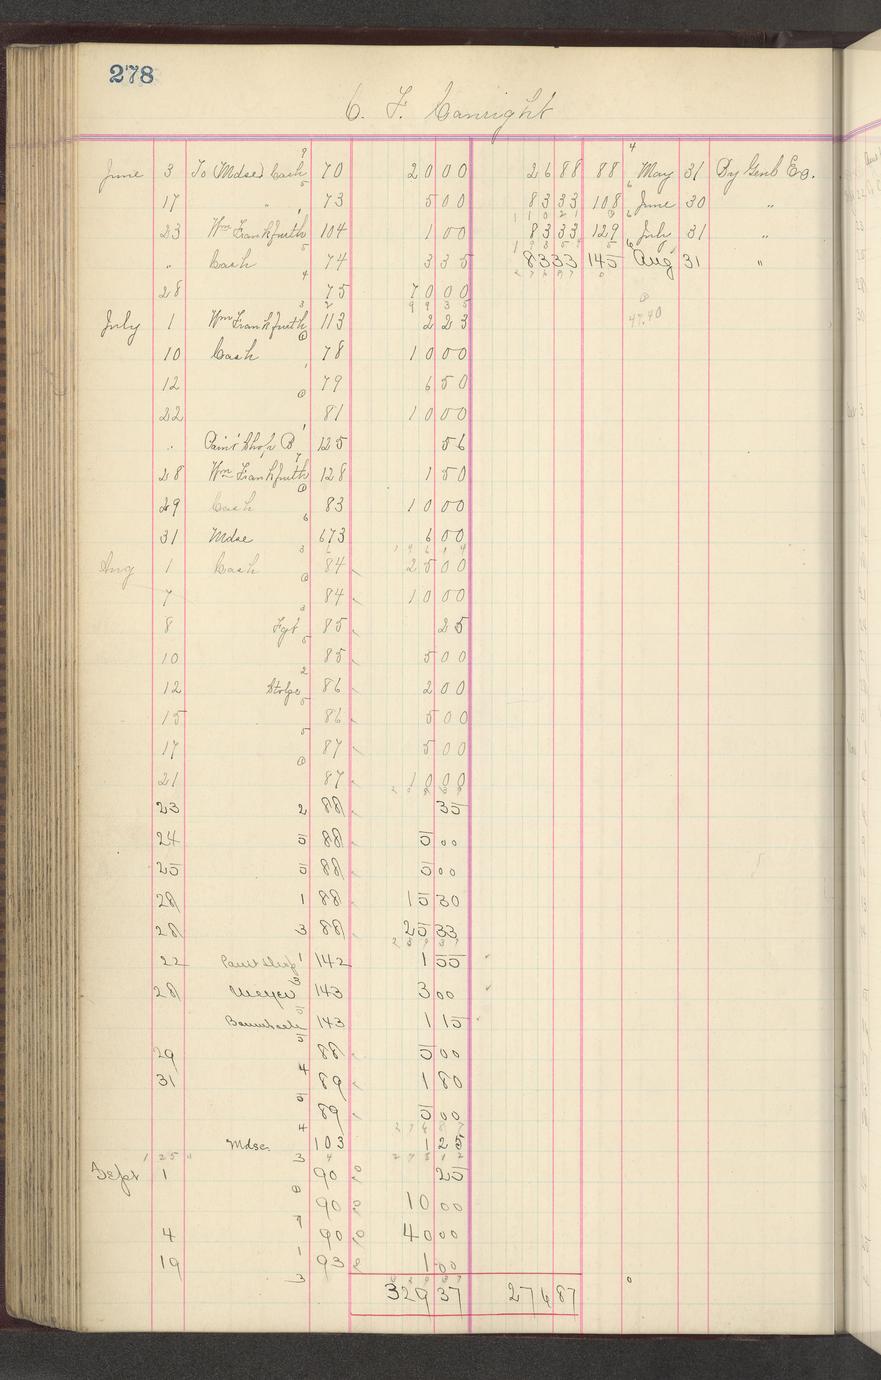 278
C. F. Canright
June 3 To (Mdse) Cash 9 70 20 00 26 88 88 4 May 31 By Genl Ex.
17 " 5 73 5 00 83 33 108 6 June 30 "
23 Wm Frankfurth 1 104 1 00 83 33 129 6 July 31 "
" Cash 5 74 3 35 83 33 145 6 Aug 31 "
28 4 75 70 00
99 35
47.40
July 1 Wm Frankfurth 3 113 2 23
10 Cash 0 78 10 00
12 1 79 6 50
22 0 81 10 00
" Paint Shop B 1 125 56
28 Wm Frankfurth 7 128 1 50
29 Cash 0 83 10 00
31 Mdse 6 673 6 00
Aug 1 Cash 3 84 25 00
7 0 84 10 00
8 Fgt 3 85 25
10 5 85 5 00
12 Strlge 2 86 2 00
15 5 86 5 00
17 5 87 5 00
21 0 87 10 00
23 2 88 35
24 5 88 5 00
25 5 88 5 00
28 1 88 15 30
28 3 88 25 33
239 37
22 Paint Shop 1 142 1 55
28 Meyer 3 143 3 00
5 143 1 15
29 5 88 5 00
31 4 89 1 80
5 89 5 00
Mdse 4 103 1 25
Sept 1 3 90 25
0 90 10 00
4 7 90 40 00
19 1 93 1 00
3 329 37 274 87